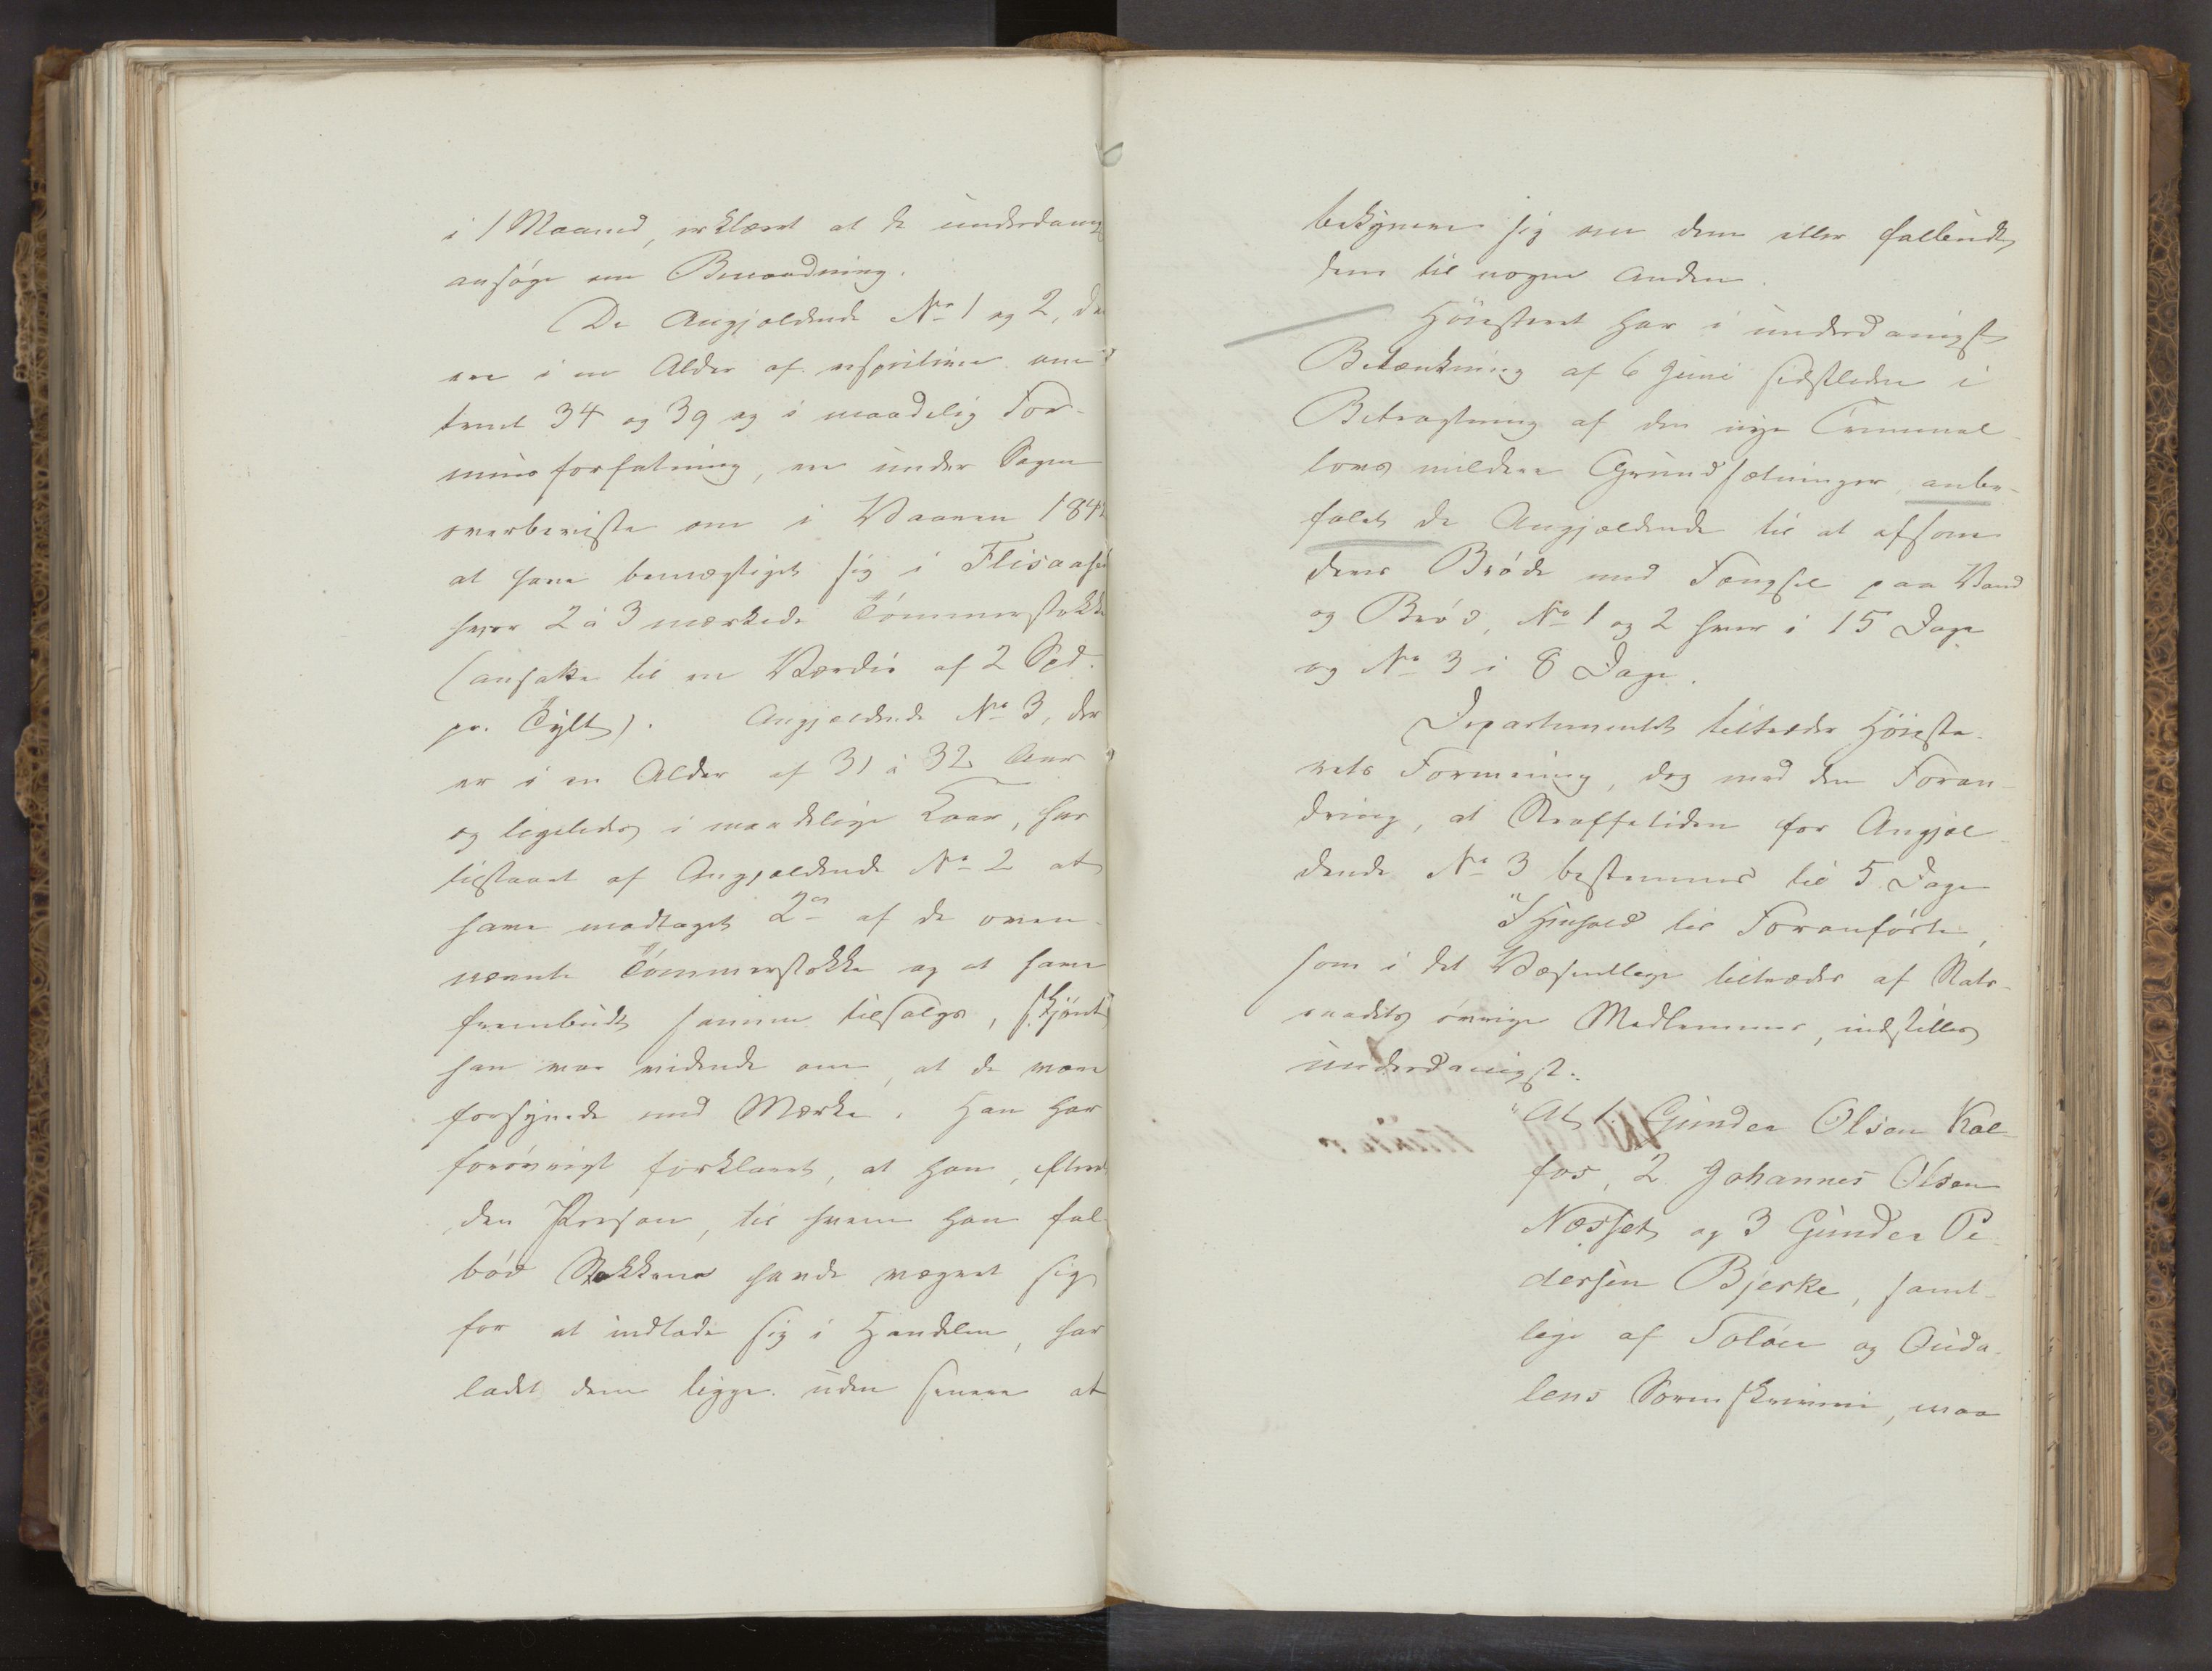 i 1 Maaned, erklæret at de underdanig
ansøge om Benaadning.
De Angjældende No 1 og 2, der
ere i en Alder af respective om¬
trent 34 og 39 og i maadelig For¬
muesforfatning, ere under Sagen
overbeviste om i Vaaren 184
at have bemægtiget sig i Flisaaen
hver 2 à 3 mærkede Tømmerstokke
(ansatte til en Værdie af 2 Spd.
pr. Tylt). Angjældende No 3, der
er i en Alder af 31 à 32 Aar
og ligeledes i maadelige Kaar, har
tilstaaet af Angjældende No 2 at
have modtaget 2de af de oven¬
nævnte Tømmerstokke og at have
frembudt samme tilsalgs, skjønt
han var vidende om, at de vare
forsynede med Mærke. Han har
forøvrigt forklaret, at han, efterat
den Person, til hvem han fal¬
bød Stokkene havde vægret sig
for at indlade sig i Handelen, har
ladet dem ligge uden senere at
bekymre sig om dem eller falbudt
dem til nogen Anden.
Høiesteret har i underdanigst
Betænkning af 6 Juni sidstleden i
Betragtning af den nye Criminal¬
lovs mildere Grundsætninger, anbe¬
falet de Angjældende til at afsone
deres Brøde med Fængsel paa Vand
og Brød, No 1 og 2 hver i 15 Dage
og No 3 i 8 Dage.
Departementet tiltræder Høieste¬
rets Formening, dog med den Foran¬
dring, at Straffetiden for Angjæl¬
dende No 3 bestemmes til 5 Dage
I Henhold til Foranførte,
som i det Væsentlige tiltrædes af Stats¬
raadets øvrige Medlemmer, indstilles
underdanigst:
"At 1. Gunder Olsen Kal¬
fos, 2 Johannes Olsen
Næsset og 3 Gunder Pe¬
dersen Bjerke, samt¬
lige af Soløer og Ouda¬
lens Sorenskriveri, maa